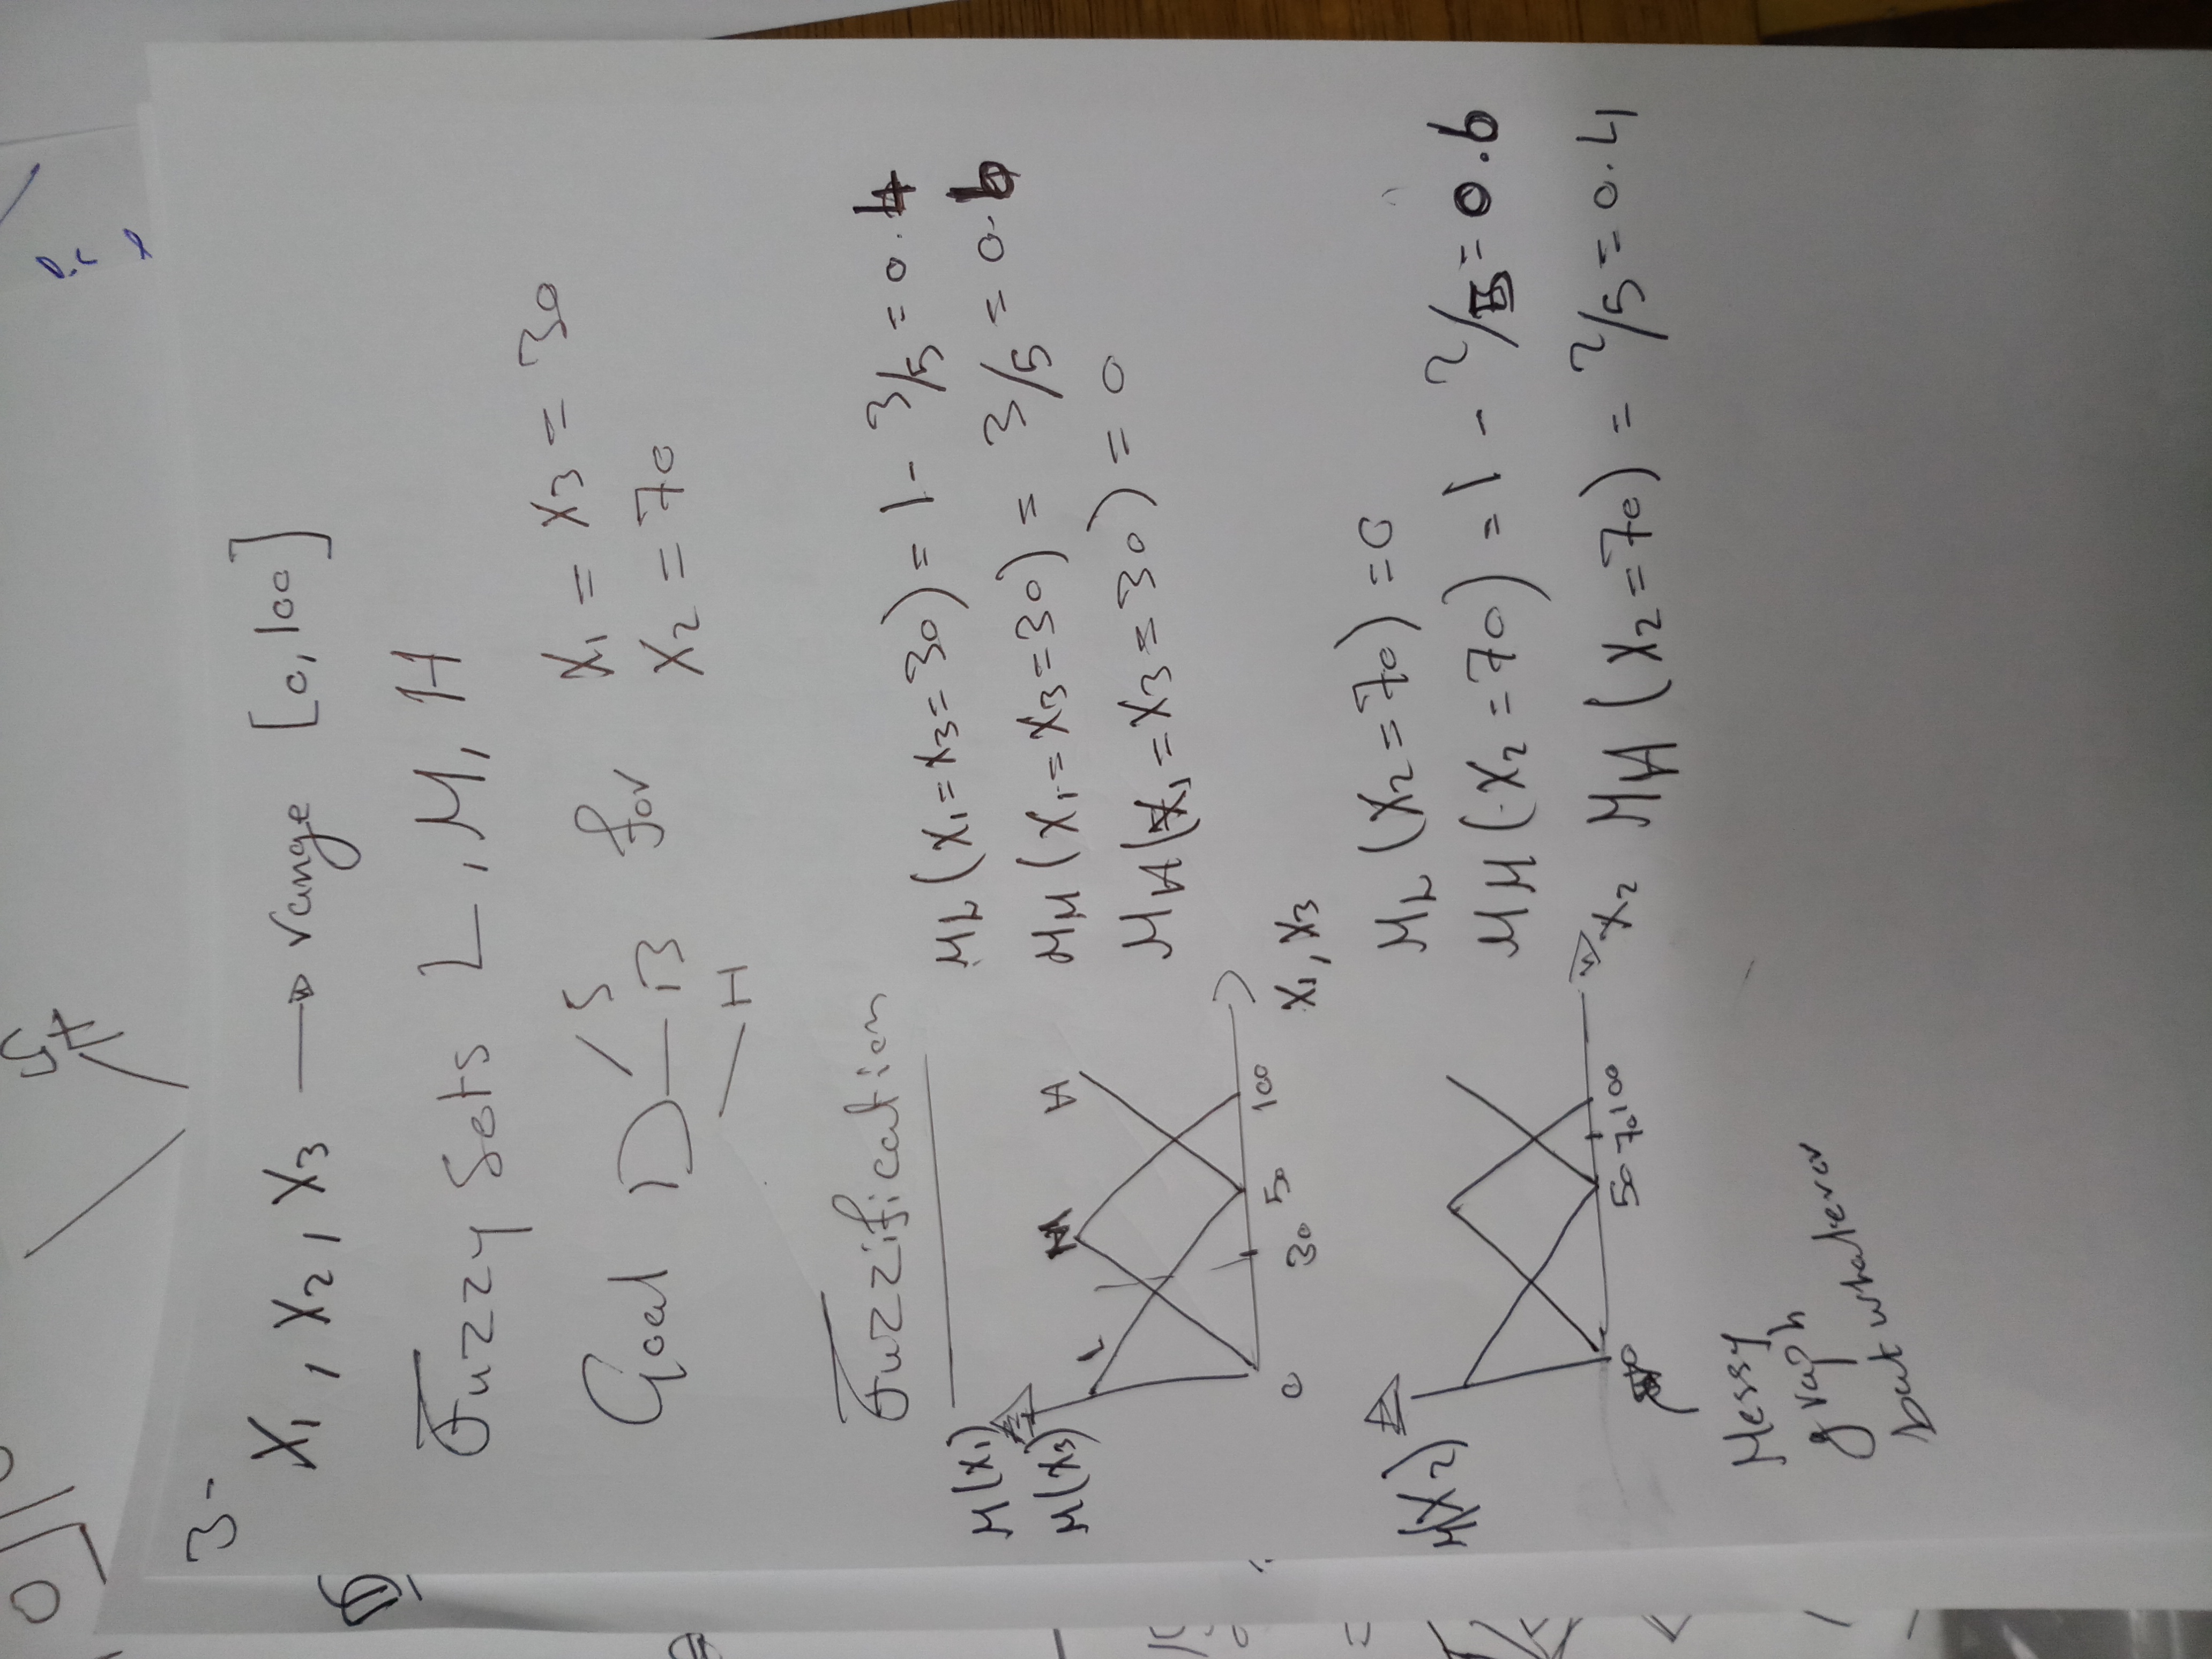 3-
X₁, X₂, X₃ → range [0, 100]
Fuzzy Sets L, M, H
Goal D for X₁ = X₃ = 30
S
B
H
X₂ = 70
Fuzzification
μ(X₁)
μ(X₃)
L M H
0 30 50 100
X₁, X₃
μL (X₁ = X₃ = 30) = 1 - 3/5 = 0.4
μM (X₁ = X₃ = 30) = 3/5 = 0.6
μH (X₁ = X₃ = 30) = 0
μ(X₂)
50 70 100
X₂
μL (X₂ = 70) = 0
μM (X₂ = 70) = 1 - 2/5 = 0.6
μH (X₂ = 70) = 2/5 = 0.4
Messy
graph
but whatever